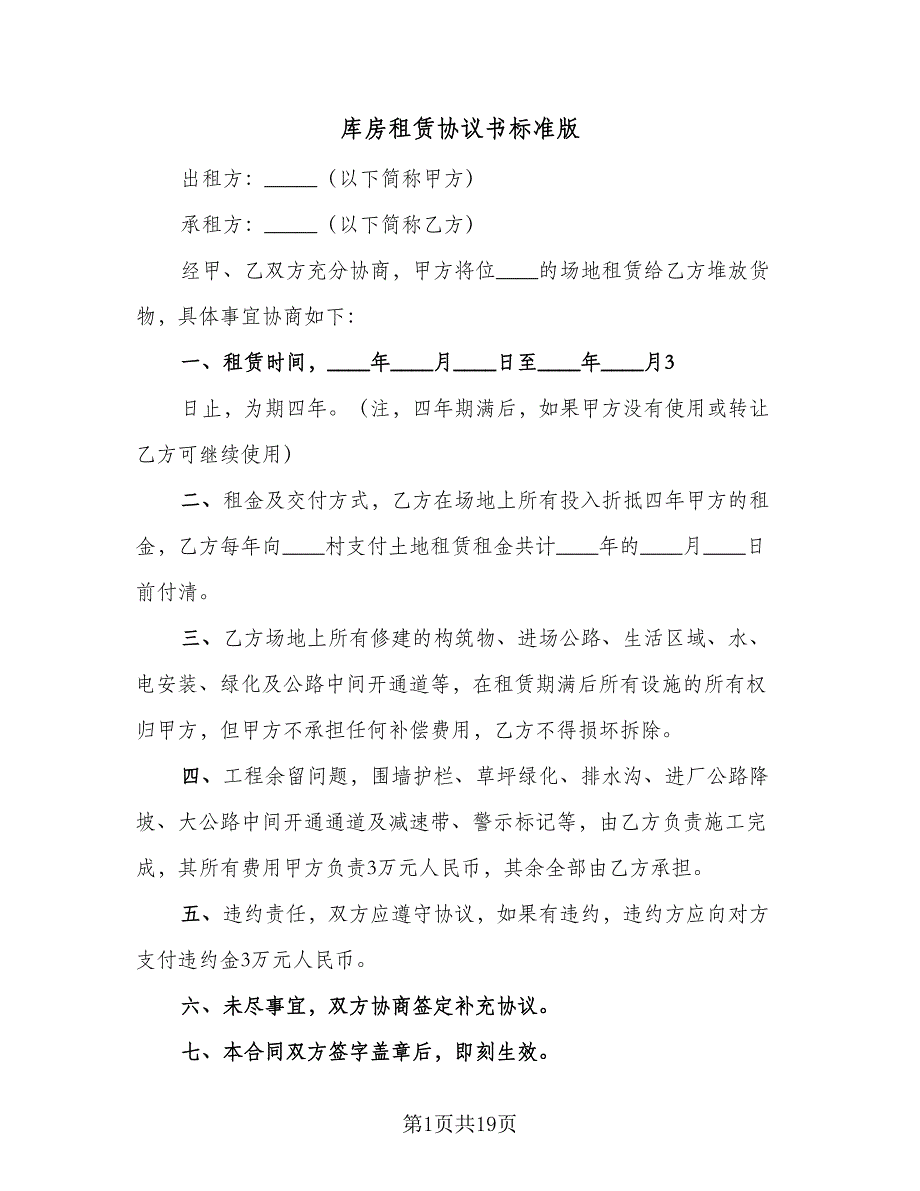 库房租赁协议书标准版
出租方：_____（以下简称甲方）
承租方：_____（以下简称乙方）
经甲、乙双方充分协商，甲方将位____的场地租赁给乙方堆放货
物，具体事宜协商如下：
一、租赁时间，____年____月____日至____年____月3
日止，为期四年。（注，四年期满后，如果甲方没有使用或转让
乙方可继续使用）
二、租金及交付方式，乙方在场地上所有投入折抵四年甲方的租
金，乙方每年向____村支付土地租赁租金共计____年的____月____日
前付清。
三、乙方场地上所有修建的构筑物、进场公路、生活区域、水、
电安装、绿化及公路中间开通道等，在租赁期满后所有设施的所有权
归甲方，但甲方不承担任何补偿费用，乙方不得损坏拆除。
四、工程余留问题，围墙护栏、草坪绿化、排水沟、进厂公路降
坡、大公路中间开通通道及减速带、警示标记等，由乙方负责施工完
成，其所有费用甲方负责3万元人民币，其余全部由乙方承担。
五、违约责任，双方应遵守协议，如果有违约，违约方应向对方
支付违约金3万元人民币。
六、未尽事宜，双方协商签定补充协议。
七、本合同双方签字盖章后，即刻生效。
第1页共19页